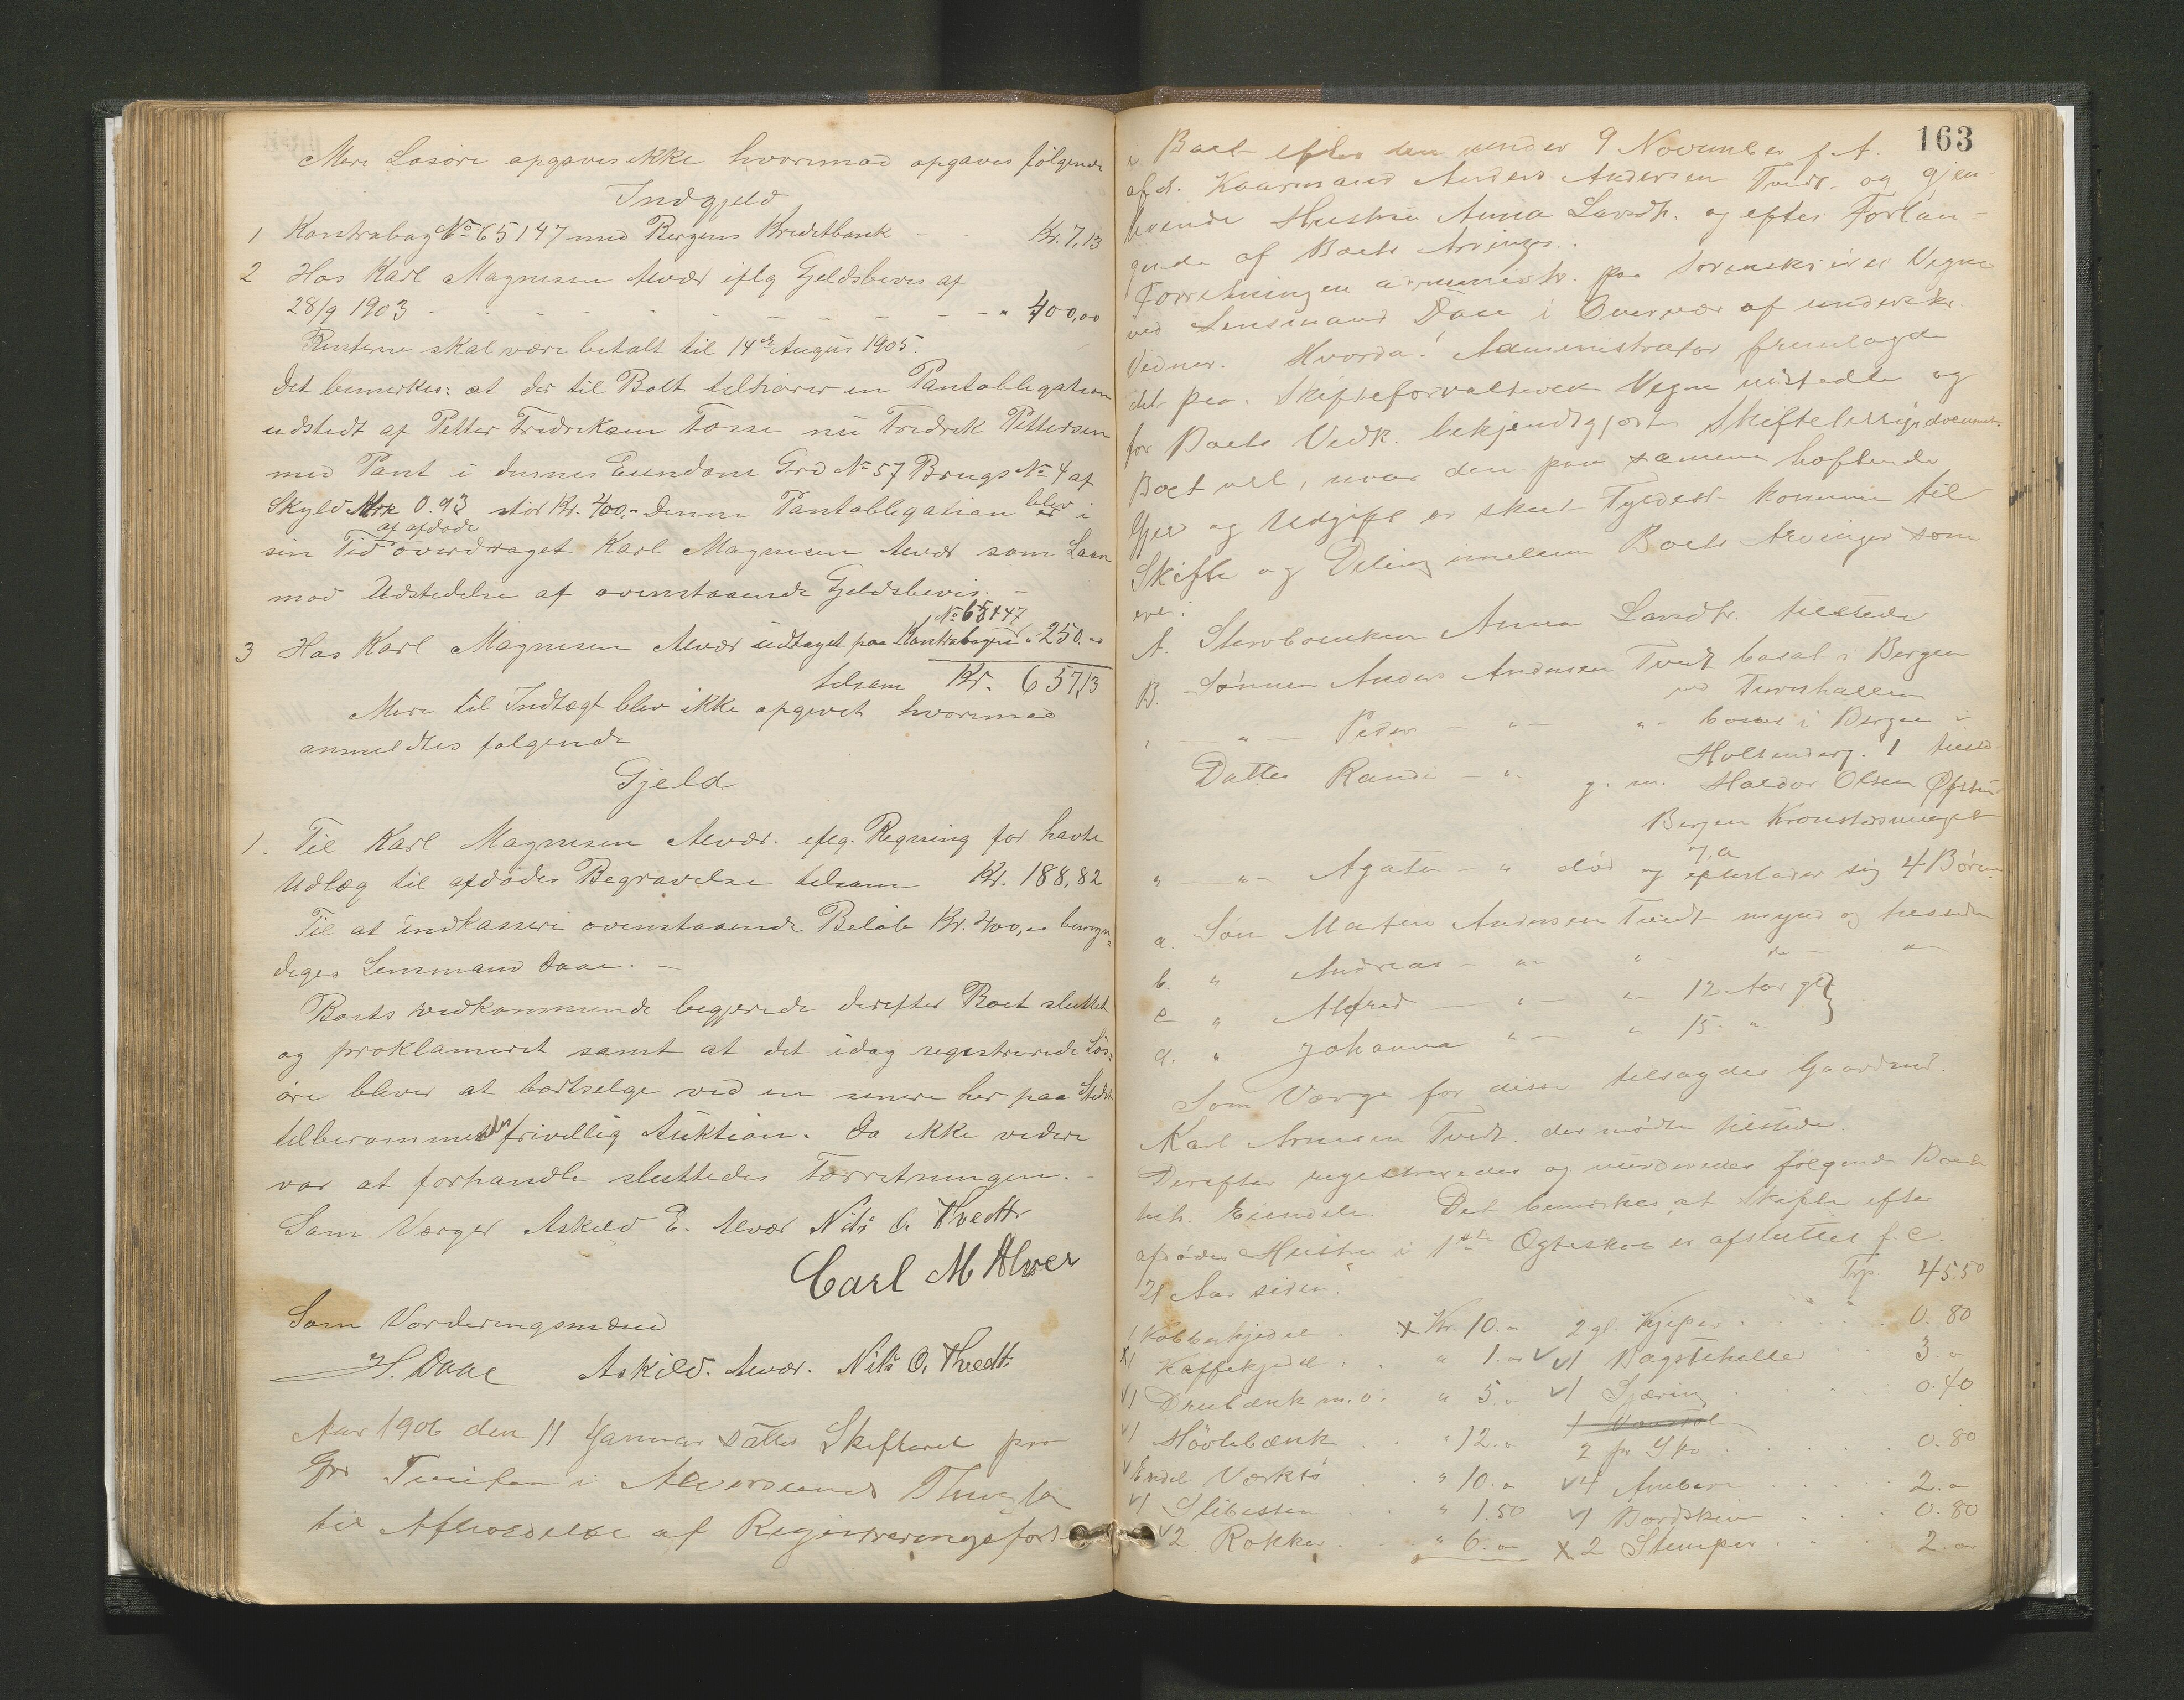 Mere Løsøre opgaves ikke hvorimod opgaves følgende
Indgjeld
1 Kontrabog No 65147 med Bergens Kreditbank - - Kr. 7,13
2 Hos Karl Magnesen Alvær iflg Gjeldsbevis af
28/9 1903 - - - - - - - - - " 400,00
Renterne skal være betalt til 14de August 1905.
Det bemerkes: at der til Boet tilhører en Pantobligation
udstedt af Petter Fredriksen Fosse nu Fredrik Pettersen
med Pant i dennes Eiendom Grd No 57 Brugs No 4 af
Skyld Mrk 0.93 stor Kr. 400.- Denne Pantobligation blev i
sin Tid af afdøde overdraget Karl Magnesen Alvær som Laan
mod Udstedelse af ovenstaaende Gjeldsbevis. -
No 65147
3 Hos Karl Magnesen Alvær udtaget paa Kontrabogen " 250.00
tilsam Kr. 657,13
Mere til Indtægt blev ikke opgivet hvorimod
anmeldtes følgende
Gjeld
1. Til Karl Magnesen Alvær. iflg. Regning for havte
Udlæg til afdødes Begravelse tilsam Kr. 188,82
Til at indkassere ovenstaaende Beløb Kr. 400,00 bemyn-
diges Lensmand Daae. -
Boets vedkommende begjerede derefter Boet sluttet
og proklameret samt at det idag registrerede Løs-
øre bliver at bortselge ved en senere her paa Stedet
tilberammendes frivillig Auktion. Da ikke videre
var at forhandle sluttedes Forretningen. -
Som Værger Askild E. Alvær Nils O. Tvedt.
Carl M Alver
Som Vorderingsmænd
H. Daae Askild. Alvær. Nils O. Tvedt.
Aar 1906 den 11 Januar sattes Skifteret paa
Grd Tveiten i Alversund Thinglag
til Afholdelse af Registreringsforr.
163
i Boet efter den under 9 November f. A.
afd. Kaarmand Anders Andersen Tvedt. og gjen-
levende Hustru Anna Larsdtr. og efter Forlan-
gende af Boets Arvinger.
Forretningen administr. paa Sorenskriveres Vegne
ved Lensmand Daae i Overvær af underskr.
Vidner. Hvorda! Administrator fremlagde
det paa Skifteforvalterens Vegne udstedte og
for Boets Vedk. bekjendtgjorte
Boet vil, naar den paa samme heftende
Gjeld og Udgift er skeet Fyldest komme til
Skifte og Deling imellem Boets Arvinger som
ere:
A. Stervboenken Anna Larsdtr. tilstede
B. Sønnen Anders Andersen Tvedt bosat i Bergen
ved Turnhallen
" - " - Peder - " - " - boende i Bergen i
Hollenderg. 1 tilsted
Datter Randi - " - g. m. Haldor Olsen Øfsti
Bergen Kronstadsveien
" - " - Agate - " død og efterlader sig 4 Børn
a. Søn Martin Andersen Tvedt mynd og tilstede
b. " Andreas - " - " - " - " -
c " Alfred - " - " - 12 Aar gl
d. " Johanna " - " 15 "
Som Værge for disse tilsagdes Gaardmd.
Karl Arnesen Tvedt. der mødte tilstede.
Derefter registreredes og vurderedes følgende Boet
tilh. Eiendele. Det bemerkes at Skifte efter
afdødes Hustru i 1ste Ægteskab er afsluttet f. C.
21 Aar siden.
Trp. 45.50
1 Kobberkjedel . x Kr. 10.00 2 gl. Kjeper . . . 0.80
x1 Kaffekjedel . . " 1.00 v v1 Bagstehelle . . 3.00
v1 Dreibænk m.v. " 5.00 v1 Sjæring . . . 0.40
v1 Høvlebænk . . " 12.00 2 pr Sko . . . . 0.80
v Endel Værktø . . " 10.00 v4 Ambare . . . 2.00
v1 Slibesten . . " 1.50 v1 Bordskive . . . 0.80
v2 Rokker . . " 6.00 x 2 Stamper . . . 2.00